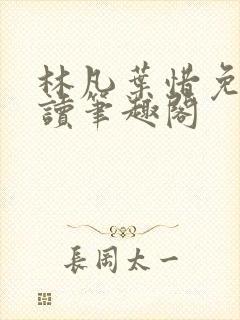 林凡葉惜免
讀筆趣閣
長岡太一